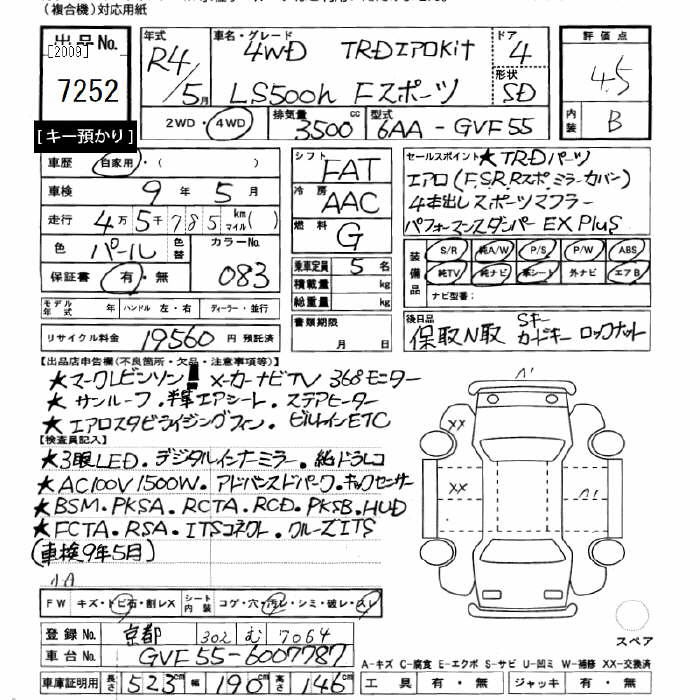 (複合機)対応用紙
出品No. [2009] 7252
[キー預かり]
年式 R4/5月
車名・グレード 4WD TRDエアロKit
LS500h Fスポーツ
ドア 4
形状 SD
評価点 4.5
内装 B
2WD・4WD 排気量 3500cc 型式 6AA-GVF55
車歴 自家用・( )
車検 9年5月
走行 4万5千785km マイル( )
色 パール 色替 カラーNo. 083
保証書 有・無
モデル年式 年 ハンドル 左・右 ディーラー・並行
リサイクル料金 19560円預託済
シフト FAT
冷房 AAC
燃料 G
乗車定員 5名
積載量 kg
総重量 kg
書類期限 月 日
セールスポイント ★TRDパーツ
エアロ(F.S.R.Rスポ.ミラーカバン)
4本出しスポーツマフラー
パフォーマンスダンパー EX Plus
装備品 S/R 純A/W P/S P/W ABS
純TV 純ナビ 革シート 外ナビ エアB
ナビ型番:
後日品 保取N取 Sキー カードキー ロックナット
【出品店申告欄(不良箇所・欠品・注意事項等)】
★マークレビンソン メーカーナビTV 360°モニター
★サンルーフ.半革エアシート.ステアヒーター
★エアロスタビライジングフィン.ビルトインETC
【検査員記入】
★3眼LED.デジタルインナーミラー.純ドラレコ
★AC100V1500W.アドバンスドパーク.キックセンサー
★BSM.PKSA.RCTA.RCD.PKSB.HUD
★FCTA.RSA.ITSコネクト.クルーズITS
(車検9年5月)
小A
FW キズ・トビ石・割レX シート内装 コゲ・穴・汚レ・シミ・破レ・スレ
登録No. 京都 302 む 7064
車台No. GVF55-6007787
車庫証明用 長さ 523cm 幅 190cm 高さ 146cm
XX
XX
スペア
A-キズ C-腐食 E-エクボ S-サビ U-凹ミ W-補修 XX-交換済
工具 有・無 ジャッキ 有・無